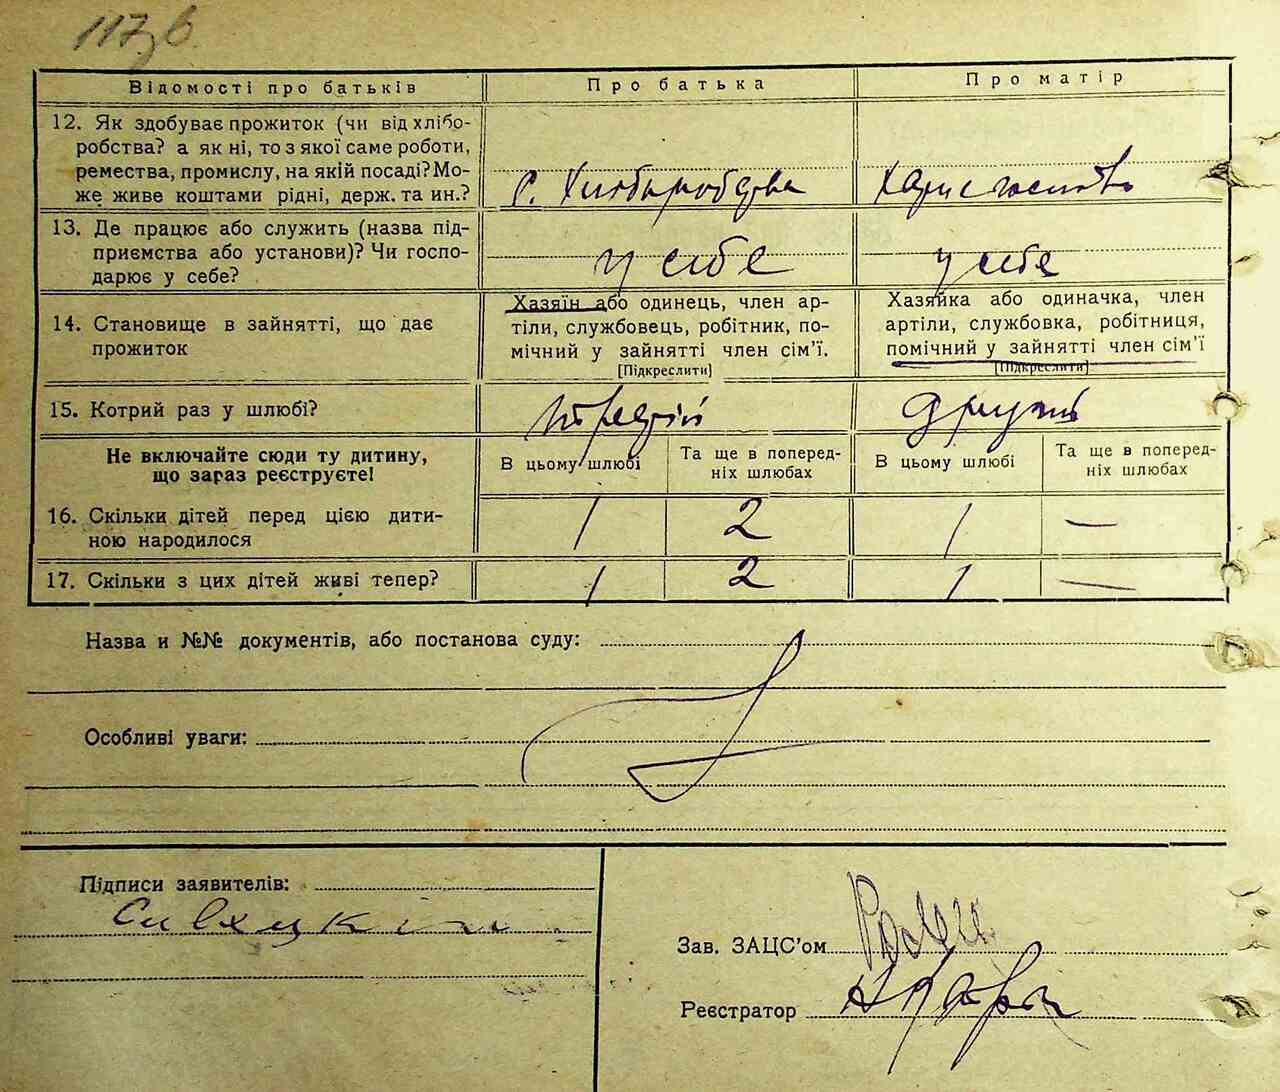 117зв
Відомості про батьків
Про батька
Про матір
12. Як здобуває прожиток (чи від хлібо-
робства? а як ні, то з якої саме роботи,
ремества, промислу, на якій посаді? Мо-
же живе коштами рідні, держ. та ин.?
13. Де працює або служить (назва під-
приємства або установи)? Чи госпо-
дарює у себе?
у себе
у себе
14. Становище в зайнятті, що дає
прожиток
Хазяїн або одинець, член ар-
тіли, службовець, робітник, по-
мічний у зайнятті член сім’ї.
[Підкреслити]
Хазяйка або одиначка, член
артіли, службовка, робітниця,
помічний у зайнятті член сім’ї
[Підкреслити]
15. Котрий раз у шлюбі?
третій
другий
Не включайте сюди ту дитину,
що зараз реєструєте!
В цьому шлюбі
Та ще в поперед-
ніх шлюбах
В цьому шлюбі
Та ще в поперед-
ніх шлюбах
16. Скільки дітей перед цією дити-
ною народилося
1 2 1 —
17. Скільки з цих дітей живі тепер?
1 2 1 —
Назва и №№ документів, або постанова суду:
Особливі уваги:
Підписи заявителів:
Зав. ЗАЦС’ом
Реєстратор